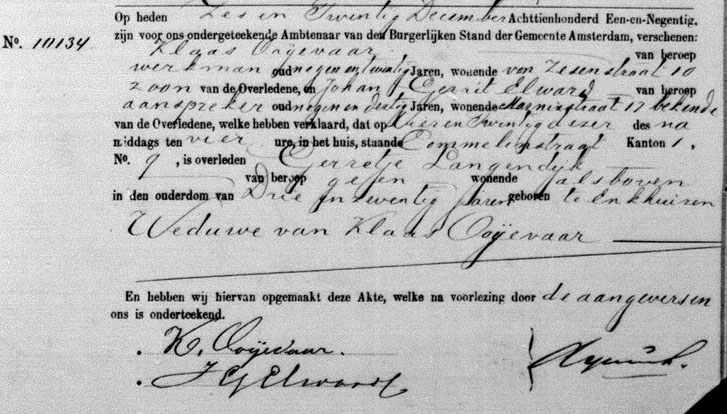 Op heden Zes en Twintig December Achttienhonderd Een-en-Negentig,
No. 10134 zijn voor ons ondergeteekende Ambtenaar van den Burgerlijken Stand der Gemeente Amsterdam, verschenen:
Klaas Ooijevaar van beroep
werkman oud negen en twintig Jaren, wonende von Zesenstraat 10
zoon van de Overledene, en Johan Gerrit Elward van beroep
aanspreker oud negen en dertig Jaren, wonende Marnixstraat 17 bekende
van de Overledene, welke hebben verklaard, dat op Vier en Twintig dezer des na
middags ten vier ure, in het huis, staande Commelinstraat Kanton 1.
No. 9, is overleden Gerretje Langendyk
van beroep geen wonende alsboven
in den ouderdom van Drie en zeventig Jaren geboren te Enkhuizen
Weduwe van Klaas Ooijevaar
En hebben wij hiervan opgemaakt deze Akte, welke na voorlezing door de aangevers en
ons is onderteekend.
K. Ooijevaar.
J G Elward